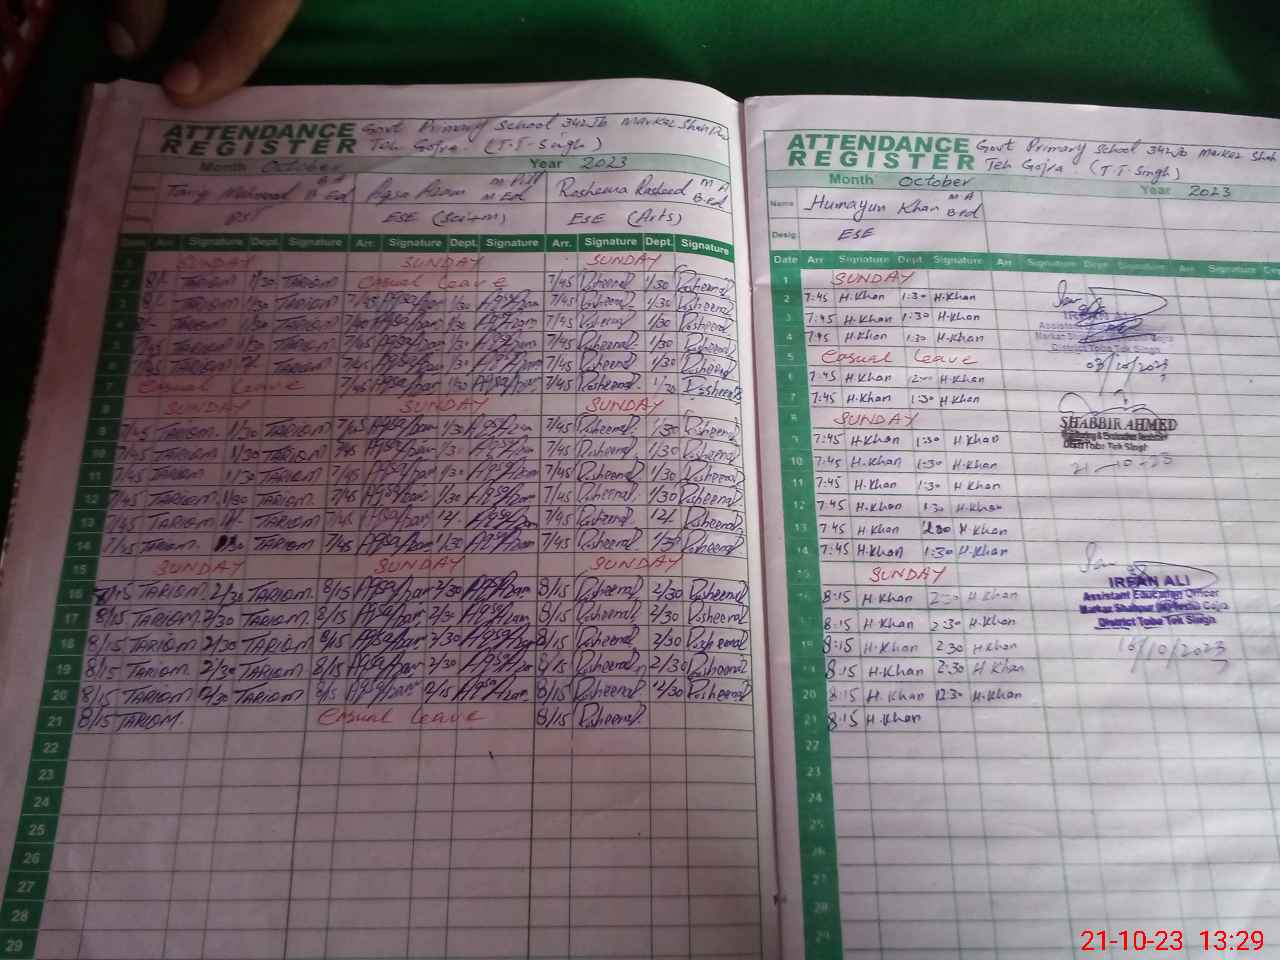 ATTENDANCE REGISTER Govt Primary School 342Jb Markez Shah
Teh Gojra. (T.T.Singh)
Month October Year 2023
Tariq Mehmood B.Ed Aqsa Azam M.Ed Rasheena Rasheed M A B.ed
PST ESE (Sci+m) ESE (Arts)
Date Arr. Signature Dept. Signature Arr. Signature Dept. Signature Arr. Signature Dept. Signature
1 SUNDAY SUNDAY SUNDAY
2 8/- TARIQM 1/30 TARIQM Casual leave 7/45 Rasheena 1/30 Rasheena
3 8/- TARIQM 1/30 TARIQM 7/45 Aqsa Azam 1/30 Aqsa Azam 7/45 Rasheena 1/30 Rasheena
4 TARIQM 1/30 TARIQM 7/45 Aqsa Azam 1/30 Aqsa Azam 7/45 Rasheena 1/30 Rasheena
5 7/45 TARIQM 1/30 TARIQM 7/45 Aqsa Azam 1/30 Aqsa Azam 7/45 Rasheena 1/30 Rasheena
6 7/45 TARIQM TARIQM 7/45 Aqsa Azam 1/30 Aqsa Azam 7/45 Rasheena 1/30 Rasheena
7 Casual leave 7/45 Aqsa Azam 1/30 Aqsa Azam 7/45 Rasheena 1/30 Rasheena
8 SUNDAY SUNDAY SUNDAY
9 7/45 TARIQM. 1/30 TARIQM 7/45 Aqsa Azam 1/30 Aqsa Azam 7/45 Rasheena 1/30 Rasheena
10 7/45 TARIQM 1/30 TARIQM 7/45 Aqsa Azam 1/30 Aqsa Azam 7/45 Rasheena 1/30 Rasheena
11 7/45 TARIQM 1/30 TARIQM 7/45 Aqsa Azam 1/30 Aqsa Azam 7/45 Rasheena 1/30 Rasheena
12 7/45 TARIQM. 1/30 TARIQM. 7/45 Aqsa Azam 1/30 Aqsa Azam 7/45 Rasheena 1/30 Rasheena
13 7/45 TARIQM TARIQM 7/45 Aqsa Azam 12/- Aqsa Azam 7/45 Rasheena 12/- Rasheena
14 7/45 TARIQM. 1/30 TARIQM. 7/45 Aqsa Azam 1/30 Aqsa Azam 7/45 Rasheena 1/30 Rasheena
15 SUNDAY SUNDAY SUNDAY
16 8/15 TARIQM 2/30 TARIQM. 8/15 Aqsa Azam 2/30 Aqsa Azam 8/15 Rasheena 2/30 Rasheena
17 8/15 TARIQM 2/30 TARIQM. 8/15 Aqsa Azam 2/30 Aqsa Azam 8/15 Rasheena 2/30 Rasheena
18 8/15 TARIQM 2/30 TARIQM 8/15 Aqsa Azam 2/30 Aqsa Azam 8/15 Rasheena 2/30 Rasheena
19 8/15 TARIQM. 2/30 TARIQM. 8/15 Aqsa Azam 2/30 Aqsa Azam 8/15 Rasheena 2/30 Rasheena
20 8/15 TARIQM 12/30 TARIQM. 8/15 Aqsa Azam Aqsa Azam 8/15 Rasheena 12/30 Rasheena
21 8/15 TARIQM. Casual leave 8/15 Rasheena
22
23
24
25
26
27
28
29
ATTENDANCE REGISTER Govt Primary School 342Jb Markez Shah
Teh Gojra. (T.T.Singh)
Month October Year 2023
Name Humayun Khan M A B.ed
Desig ESE
Date Arr Signature Dept Signature Arr Signature Dept Signature Arr Signature
1 SUNDAY
2 7:45 H.Khan 1:30 H.Khan
3 7:45 H.Khan 1:30 H.Khan
4 7:45 H.Khan 1:30 H.Khan
5 Casual leave
6 7:45 H.Khan H.Khan
7 7:45 H.Khan 1:30 H.Khan
8 SUNDAY
9 7:45 H.Khan 1:30 H.Khan
10 7:45 H.Khan 1:30 H.Khan
11 7:45 H.Khan 1:30 H.Khan
12 7:45 H.Khan 1:30 H.Khan
13 7:45 H.Khan H.Khan
14 7:45 H.Khan 1:30 H.Khan
15 SUNDAY
16 8:15 H.Khan 2:30 H Khan
17 8:15 H.Khan 2:30 H.Khan
18 8:15 H.Khan 2:30 H.Khan
19 8:15 H.Khan 2:30 H Khan
20 8:15 H.Khan 12:30 H.Khan
21 8:15 H.Khan
22
23
24
25
26
27
28
29
IRFAN ALI
03/10/2023
SHABBIR AHMED
Distt Toba Tek Singh
21-10-23
IRFAN ALI
Assistant Education Officer
Markaz Shahpur Gojra
District Toba Tek Singh
16/10/2023
21-10-23 13:29